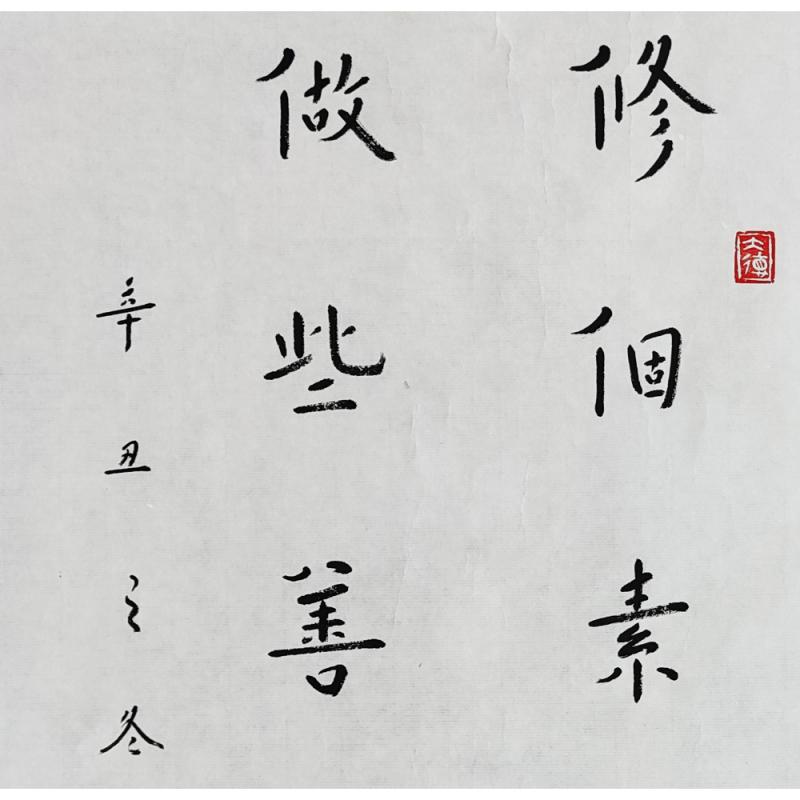 修個素
做些善
辛丑之冬
大德